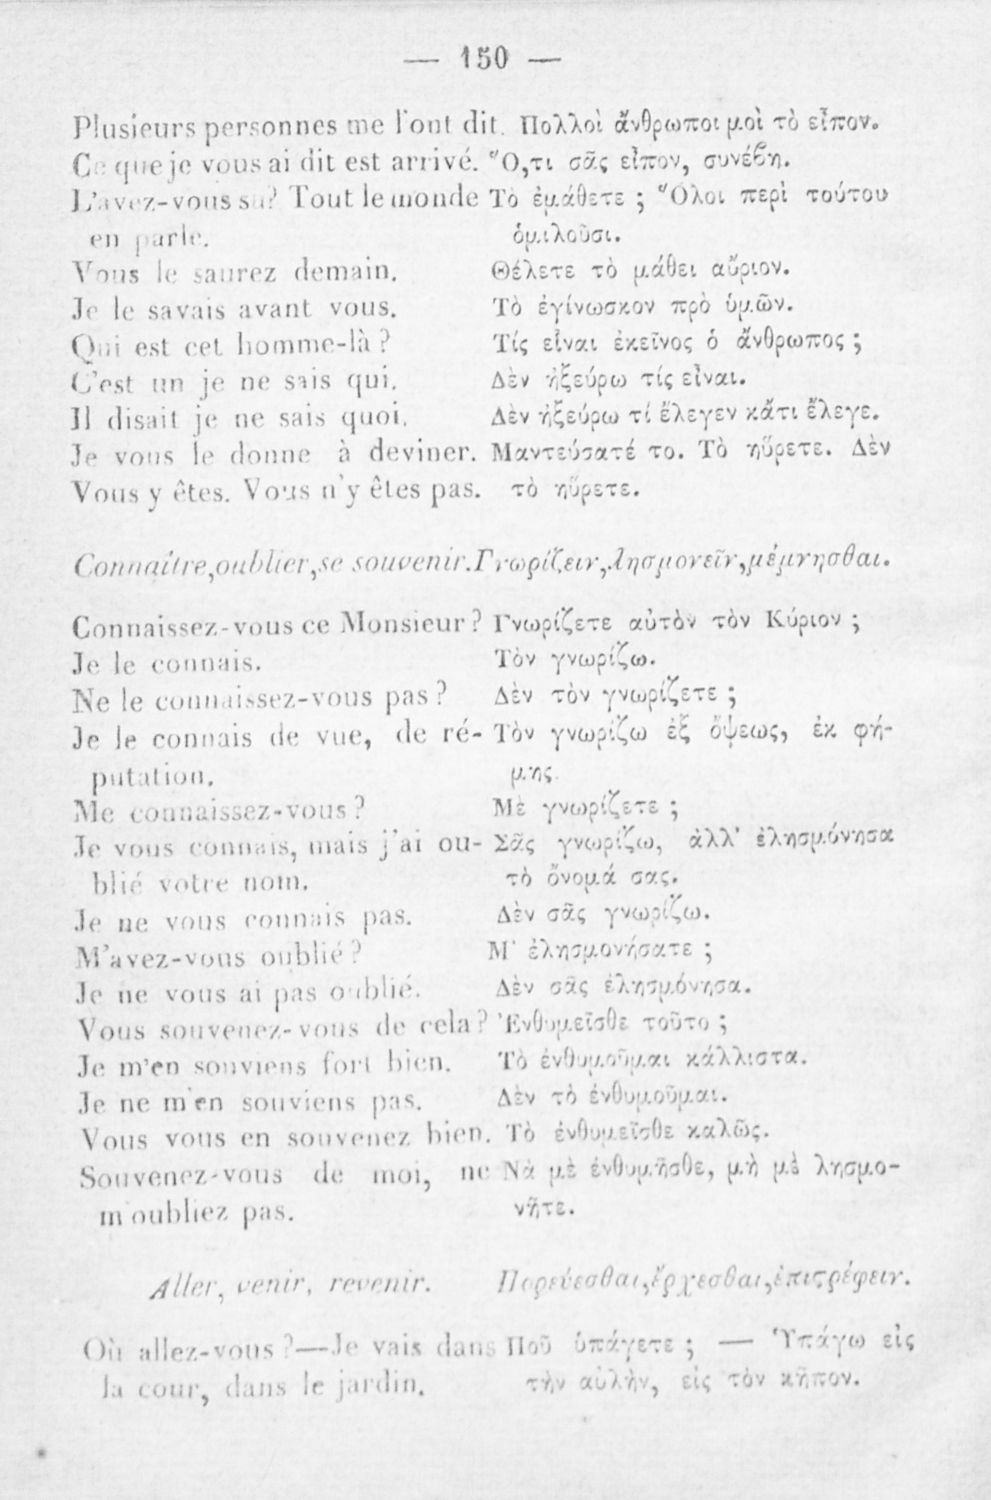 — 150 —
Plusieurs personnes me l'ont dit. Πολλοὶ ἄνθρωποι μοὶ τὸ εἶπον.
Ce que je vous ai dit est arrivé. Ὅ,τι σᾶς εἶπον, συνέβη.
L'avez-vous su? Tout le monde Τὸ ἐμάθετε ; Ὅλοι περὶ τούτου
en parle. ὁμιλοῦσι.
Vous le saurez demain. Θέλετε τὸ μάθει αὔριον.
Je le savais avant vous. Τὸ ἐγίνωσκον πρὸ ὑμῶν.
Qui est cet homme-là ? Τίς εἶναι ἐκεῖνος ὁ ἄνθρωπος ;
C'est un je ne sais qui. Δὲν ἠξεύρω τίς εἶναι.
Il disait je ne sais quoi. Δὲν ἠξεύρω τί ἔλεγεν κἄτι ἔλεγε.
Je vous le donne à deviner. Μαντεύσατέ το. Τὸ ηὕρετε. Δὲν
Vous y êtes. Vous n'y êtes pas. τὸ ηὕρετε.
Connaître, oublier, se souvenir. Γνωρίζειν, λησμονεῖν, μέμνησθαι.
Connaissez-vous ce Monsieur ? Γνωρίζετε αὐτὸν τὸν Κύριον ;
Je le connais. Τὸν γνωρίζω.
Ne le connaissez-vous pas ? Δὲν τὸν γνωρίζετε ;
Je le connais de vue, de ré- Τὸν γνωρίζω ἐξ ὄψεως, ἐκ φή-
putation. μης.
Me connaissez-vous ? Μὲ γνωρίζετε ;
Je vous connais, mais j'ai ou- Σᾶς γνωρίζω, ἀλλ' ἐλησμόνησα
blié votre nom. τὸ ὄνομά σας.
Je ne vous connais pas. Δὲν σᾶς γνωρίζω.
M'avez-vous oublié ? Μ' ἐλησμονήσατε ;
Je ne vous ai pas oublié. Δὲν σᾶς ἐλησμόνησα.
Vous souvenez-vous de cela ? Ἐνθυμεῖσθε τοῦτο ;
Je m'en souviens fort bien. Τὸ ἐνθυμοῦμαι κάλλιστα.
Je ne m'en souviens pas. Δὲν τὸ ἐνθυμοῦμαι.
Vous vous en souvenez bien. Τὸ ἐνθυμεῖσθε καλῶς.
Souvenez-vous de moi, ne Νὰ μὲ ἐνθυμῆσθε, μὴ μὲ λησμο-
m'oubliez pas. νῆτε.
Aller, venir, revenir. Πορεύεσθαι, ἔρχεσθαι, ἐπιςρέφειν.
Où allez-vous ?—Je vais dans Ποῦ ὑπάγετε ; — Ὑπάγω εἰς
la cour, dans le jardin. τὴν αὐλὴν, εἰς τὸν κῆπον.